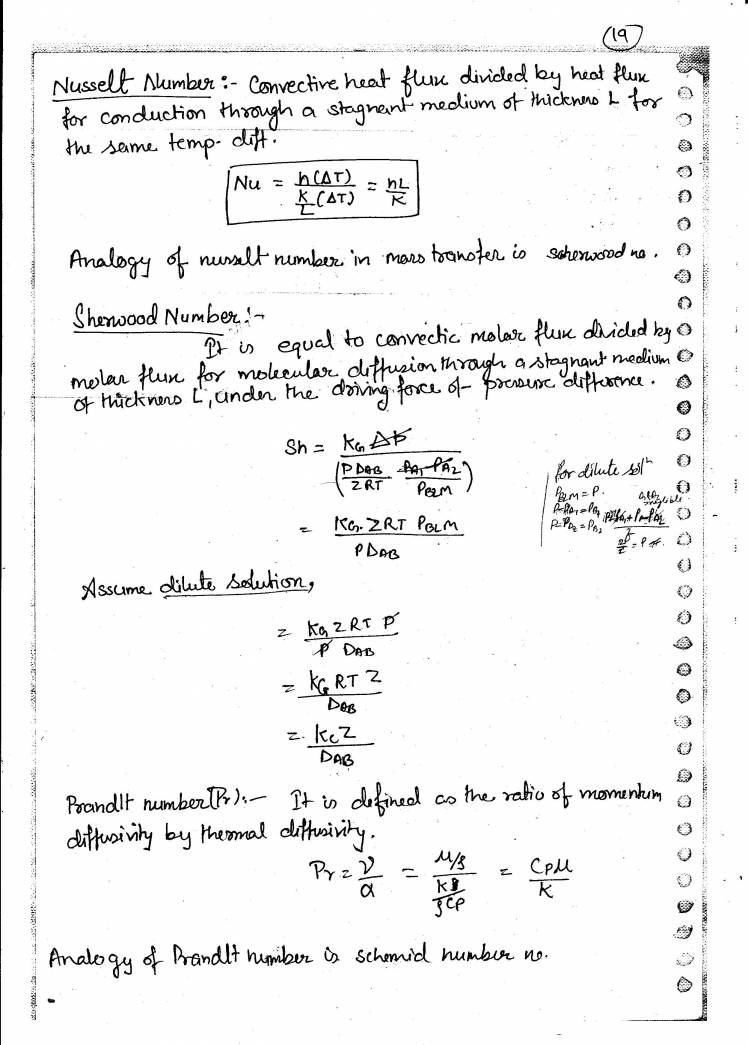 19
Nusselt Number :- Convective heat flux divided by heat flux
for conduction through a stagnant medium of thickness L for
the same temp. diff.
Nu = h(ΔT) / (K/L (ΔT)) = hL/K
Analogy of nusselt number in mass transfer is scherwood no.
Sherwood Number :-
It is equal to convectic molar flux divided by
molar flux for molecular diffusion through a stagnant medium
of thickness L, under the driving force of pressure difference.
Sh = KG Δp / (P DAB / ZRT · (PA1 - PA2) / PBLM)
= KG · ZRT PBLM / P DAB
for dilute solⁿ
PBLM = P.
P-PA1 = PB1
P-PA2 = PB2
= P
Assume dilute solution,
= KG Z RT P / P DAB
= KG RT Z / DAB
= Kc Z / DAB
Prandlt number (Pr) :- It is defined as the ratio of momentum
diffusivity by thermal diffusivity.
Pr = ν/α = (μ/ρ) / (K/ρCp) = Cpμ/K
Analogy of Prandlt number is schemid number no.